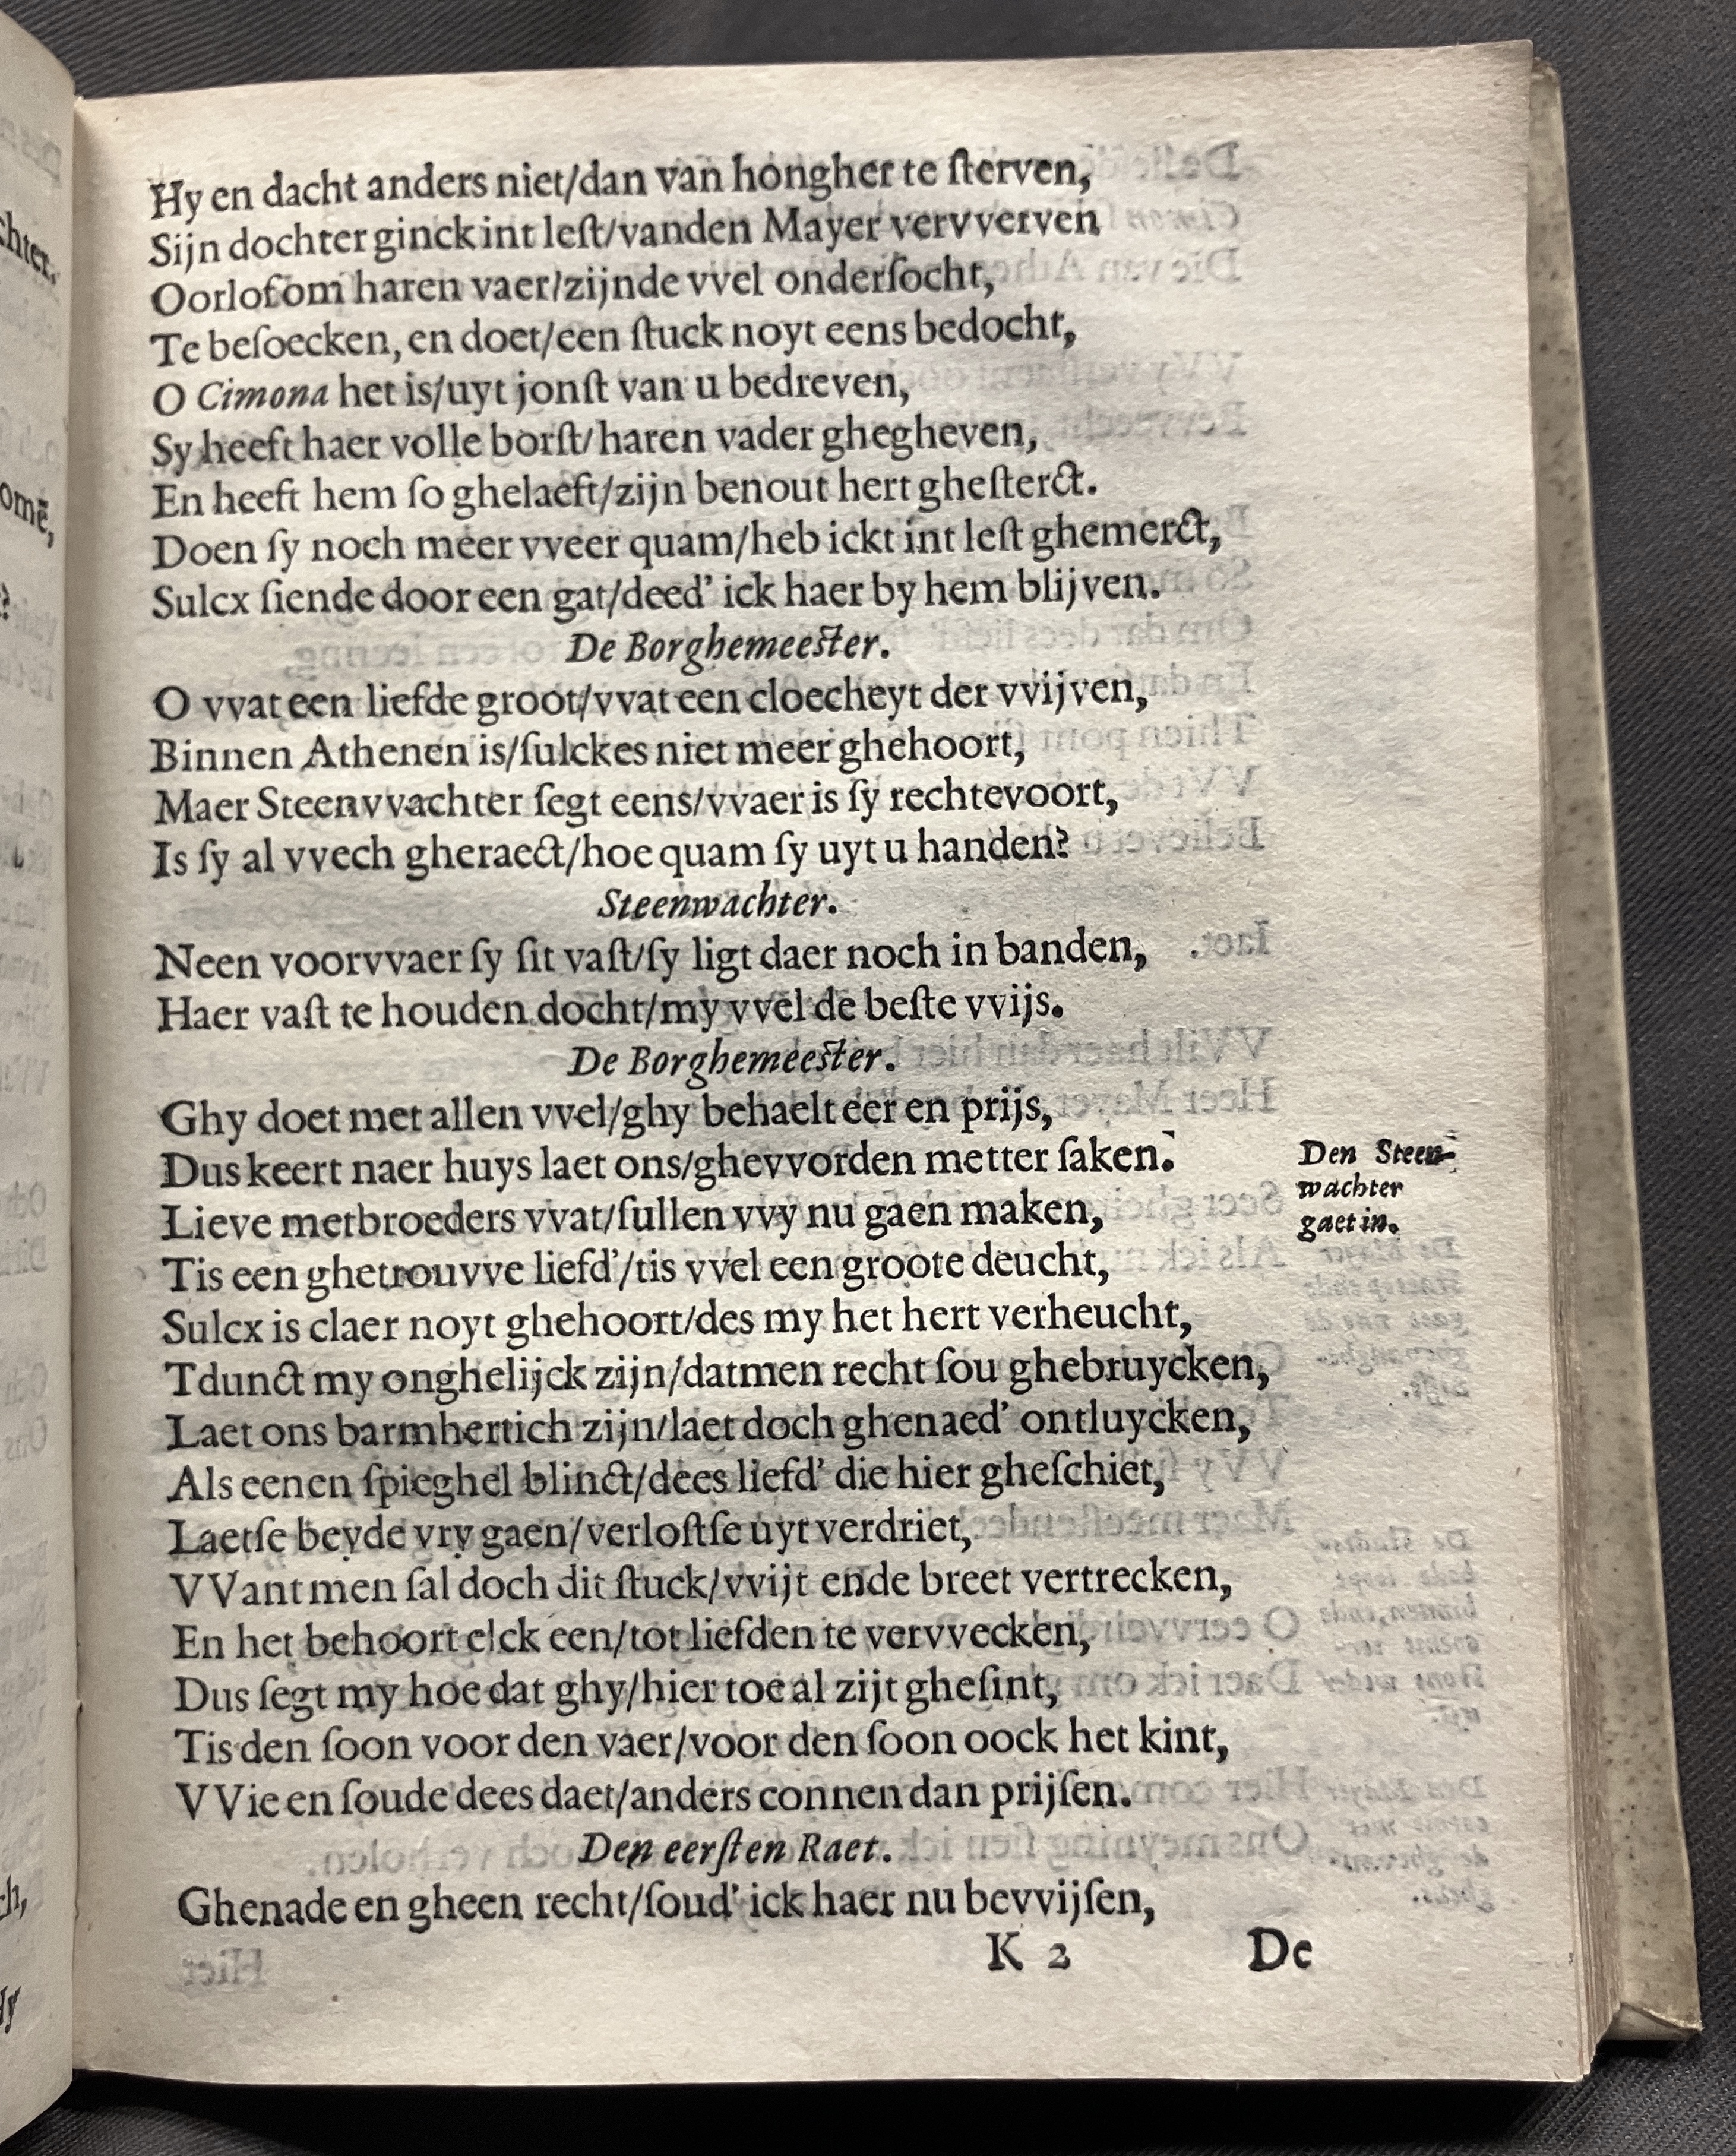 Hy en dacht anders niet/dan van hongher te ſterven,
Sijn dochter ginck int leſt/vanden Mayer vervverven
Oorlof om haren vaer/zijnde vvel onderſocht,
Te beſoecken, en doet/een ſtuck noyt eens bedocht,
O Cimona het is/uyt jonſt van u bedreven,
Sy heeft haer volle borſt/haren vader ghegheven,
En heeft hem ſo ghelaeft/zijn benout hert gheſterct.
Doen ſy noch meer vveer quam/heb ickt int leſt ghemerct,
Sulcx ſiende door een gat/deed' ick haer by hem blijven.
De Borghemeeſter.
O vvat een liefde groot/vvat een cloecheyt der vvijven,
Binnen Athenen is/ſulckes niet meer ghehoort,
Maer Steenvvachter ſegt eens/vvaer is ſy rechtevoort,
Is ſy al vvech gheraect/hoe quam ſy uyt u handen?
Steenwachter.
Neen voorvvaer ſy ſit vaſt/ſy ligt daer noch in banden,
Haer vaſt te houden docht/my vvel de beſte vvijs.
De Borghemeeſter.
Ghy doet met allen vvel/ghy behaelt eer en prijs,
Dus keert naer huys laet ons/ghevvorden metter ſaken.
Den Steen-
wachter
gaet in.
Lieve metbroeders vvat/ſullen vvy nu gaen maken,
Tis een ghetrouvve liefd'/tis vvel een groote deucht,
Sulcx is claer noyt ghehoort/des my het hert verheucht,
Tdunct my onghelijck zijn/datmen recht ſou ghebruycken,
Laet ons barmhertich zijn/laet doch ghenaed' ontluycken,
Als eenen ſpieghel blinct/dees liefd' die hier gheſchiet,
Laetſe beyde vry gaen/verloſtſe uyt verdriet,
VVant men ſal doch dit ſtuck/vvijt ende breet vertrecken,
En het behoort elck een/tot liefden te vervvecken,
Dus ſegt my hoe dat ghy/hier toe al zijt gheſint,
Tis den ſoon voor den vaer/voor den ſoon oock het kint,
VVie en ſoude dees daet/anders connen dan prijſen.
Den eerſten Raet.
Ghenade en gheen recht/ſoud' ick haer nu bevvijſen,
K 2 De